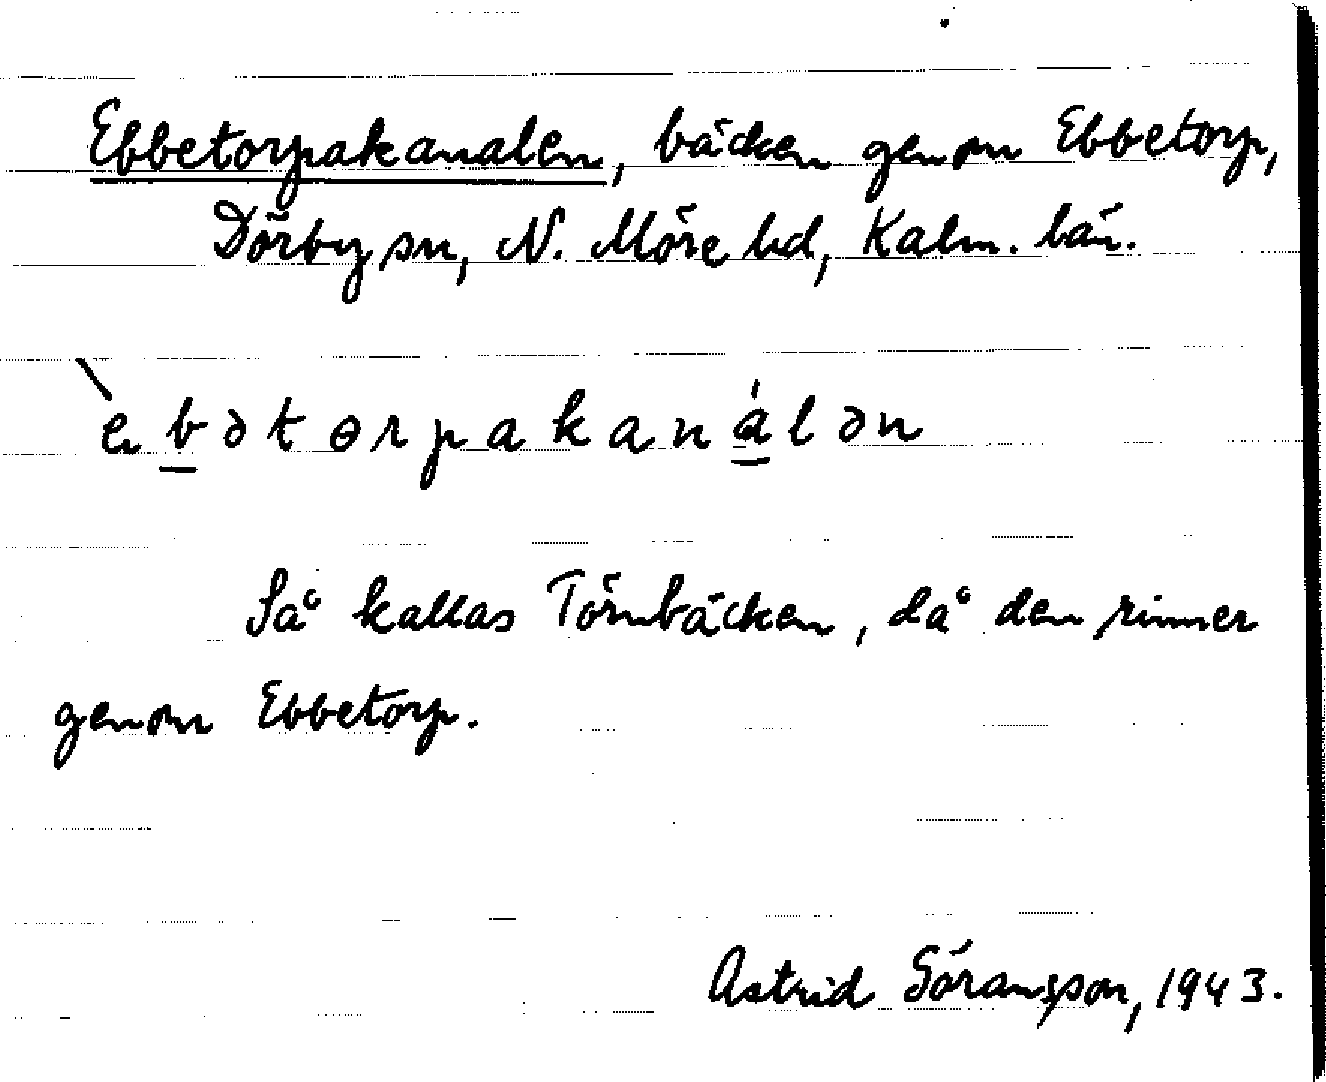 Ebbetorpakanalen, bäcken genom Ebbetorp,
Dörby sn, N. Möre hd, Kalm. län.
èb̲ətɵrpakaná̲lən
Så kallas Törnbäcken, då den rinner
genom Ebbetorp.
Astrid Göransson, 1943.